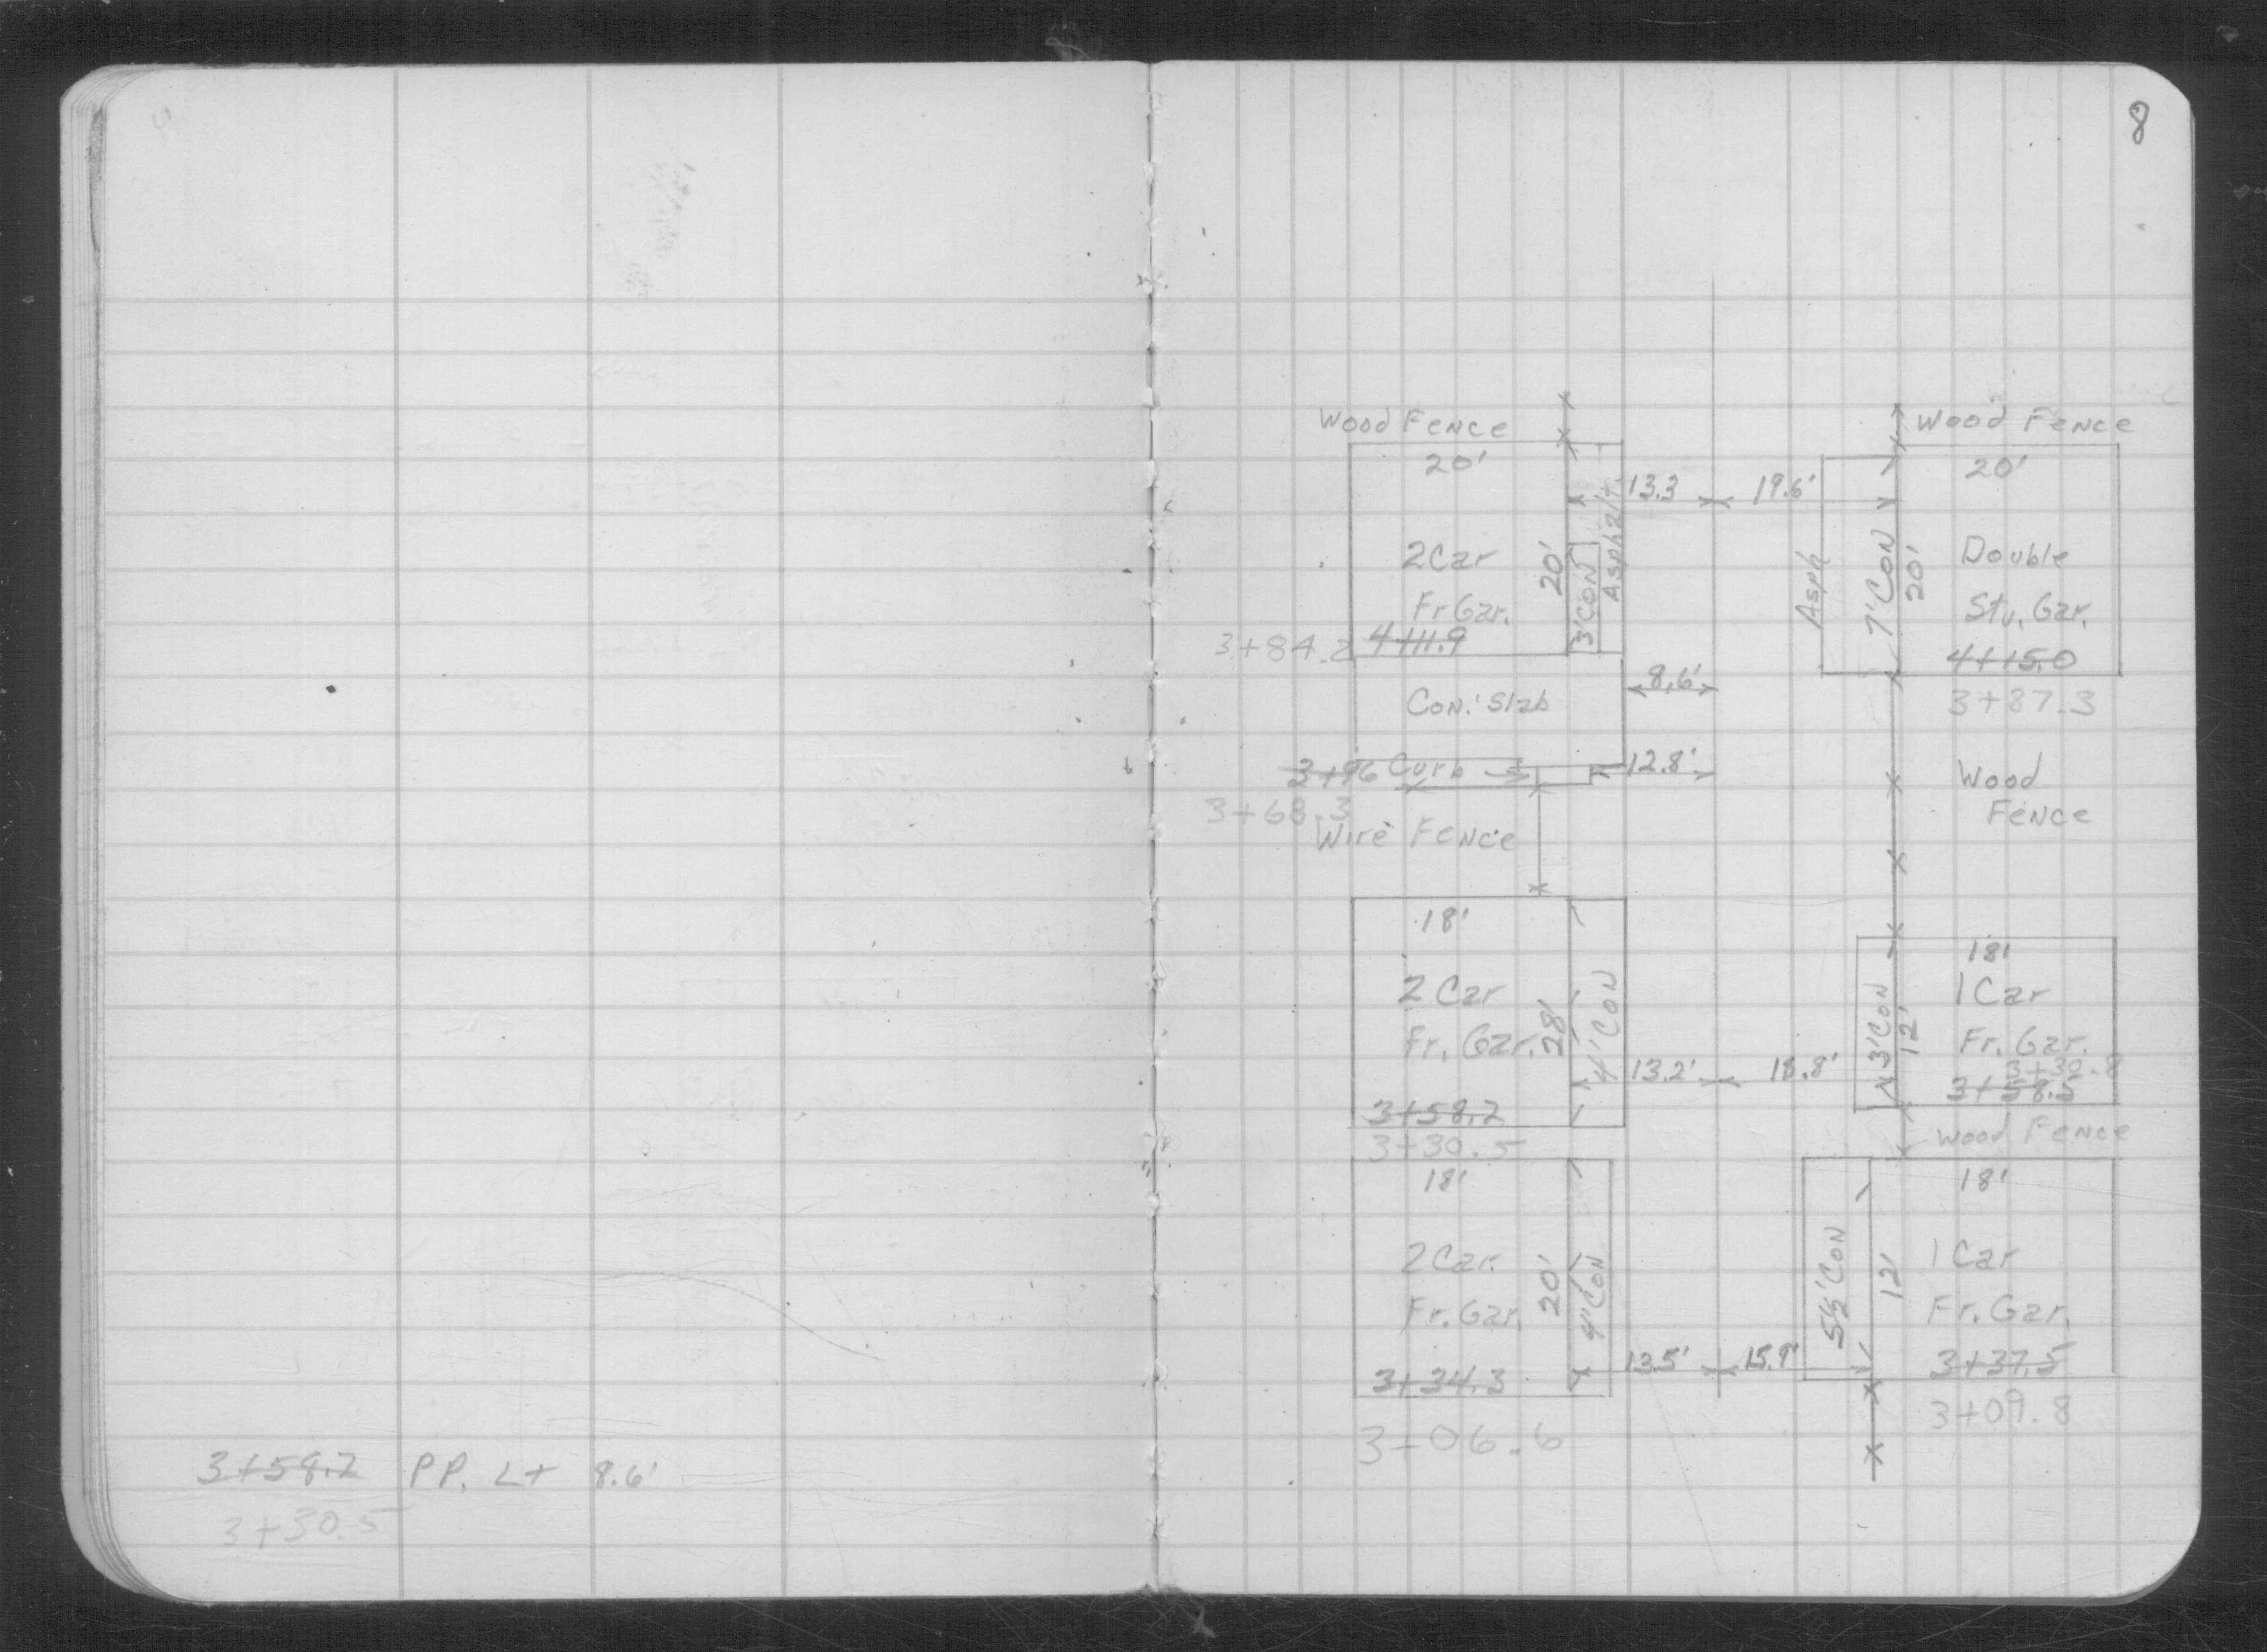 3+58.2 PP. Lt 8.6'
3+30.5
8
Wood Fence
Wood Fence
20'
20'
13.3
19.6'
2 Car
Fr Gar.
20'
3' CON
Asphalt.
Asph
7' CON
20'
Double
Stu. Gar.
3+84.2
4+11.9
4+15.0
3+87.3
8.6'
Con. Slab
3+96 Curb
12.8'
3+68.3
Wire Fence
Wood
Fence
18'
18'
2 Car
Fr. Gar.
28'
4' CON
3' CON
12'
1 Car
Fr. Gar.
13.2'
18.8'
3+30.8
3+58.2
3+58.5
3+30.5
Wood Fence
18'
18'
2 Car
Fr. Gar.
20'
4' CON
5½' CON
12'
1 Car
Fr. Gar.
13.5'
15.9'
3+34.3
3+37.5
3+06.6
3+09.8